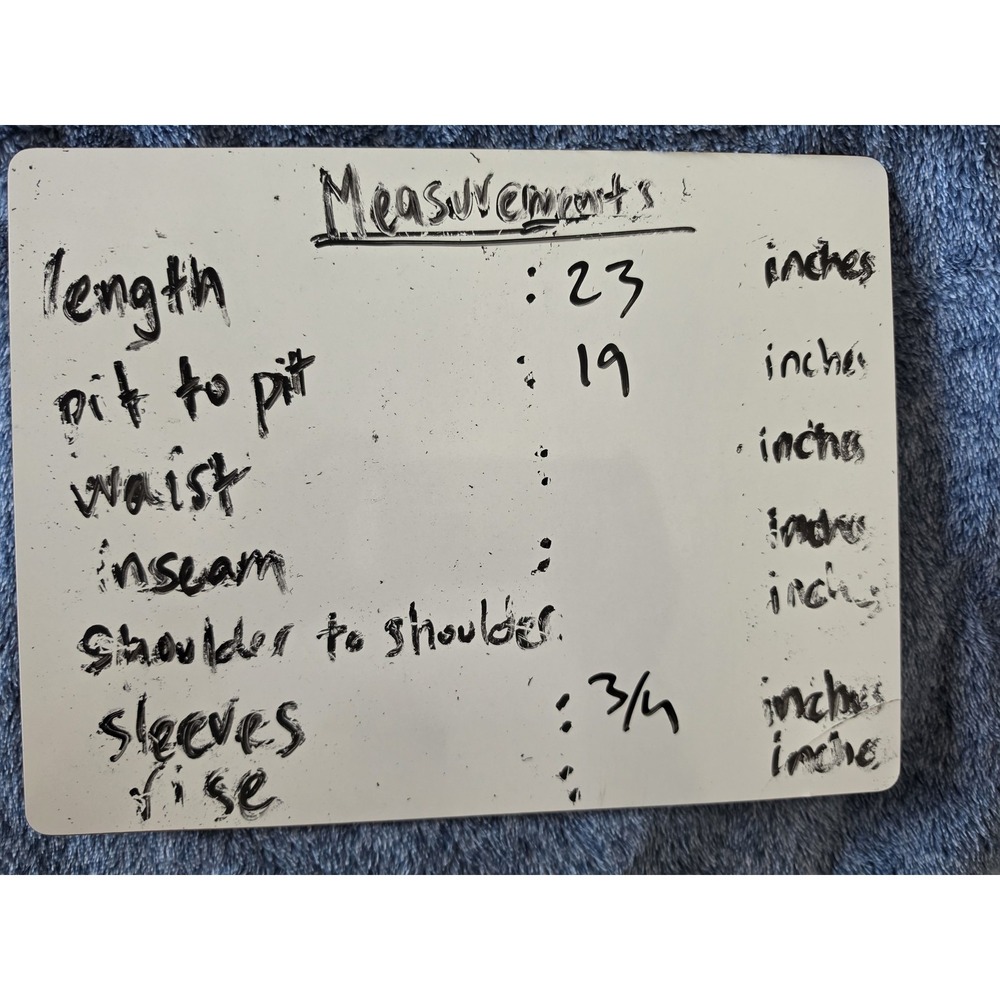 Measurements
length : 23 inches
pit to pit : 19 inches
waist : inches
inseam : inches
shoulder to shoulder inches
sleeves : 3/4 inches
rise : inche